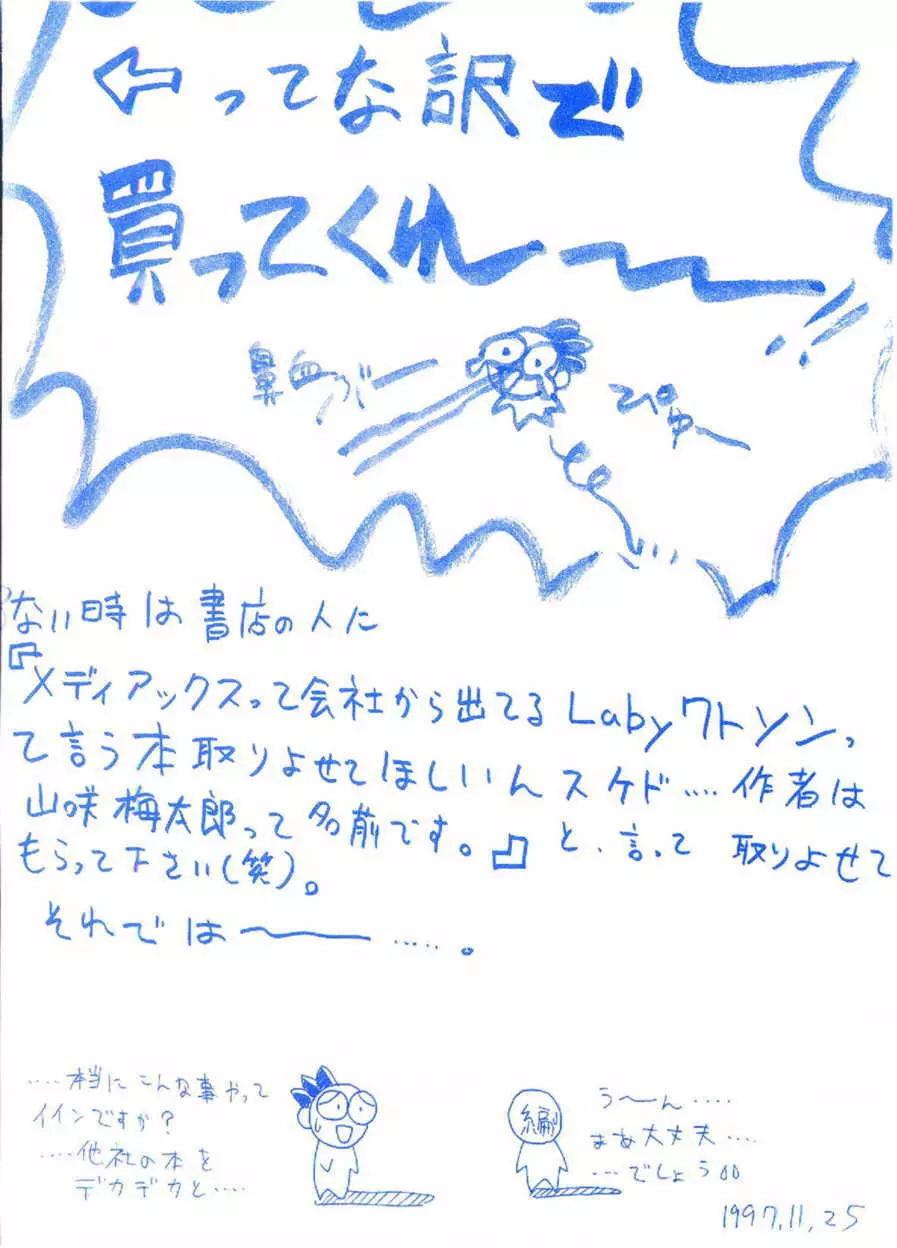 ←ってな訳で
買ってくれ〜〜!!
鼻血ブー
ぴゅ〜
ない時は書店の人に
『メディアックスって会社から出てるLabyワトソンっ
て言う本取りよせてほしいんスケド‥‥作者は
山咲梅太郎って名前です。』と、言って取りよせて
もらって下さい(笑)。
それでは〜‥‥‥。
‥‥本当にこんな事やって
イインですか?
‥‥他社の本を
デカデカと‥‥
編
う〜ん‥‥
まあ大丈夫‥‥
‥‥でしょう
1997,11,25